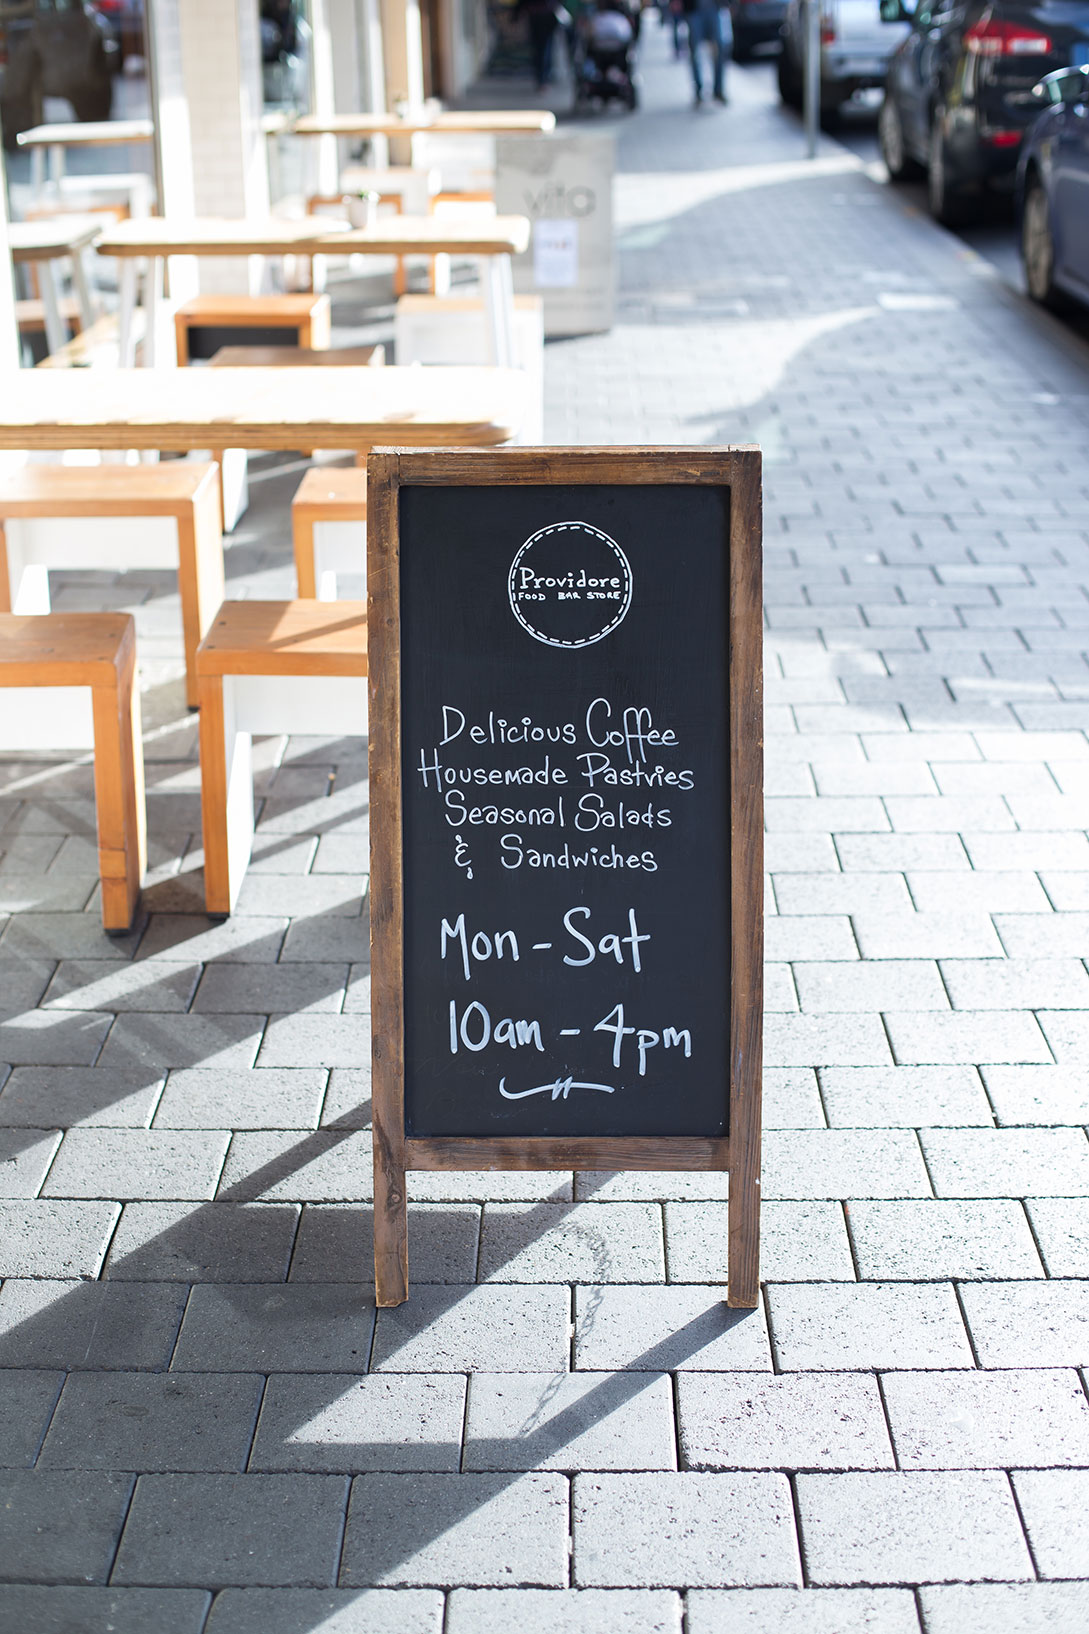 Providore
FOOD BAR STORE
Delicious Coffee
Housemade Pastries
Seasonal Salads
& Sandwiches
Mon - Sat
10am - 4pm
vita